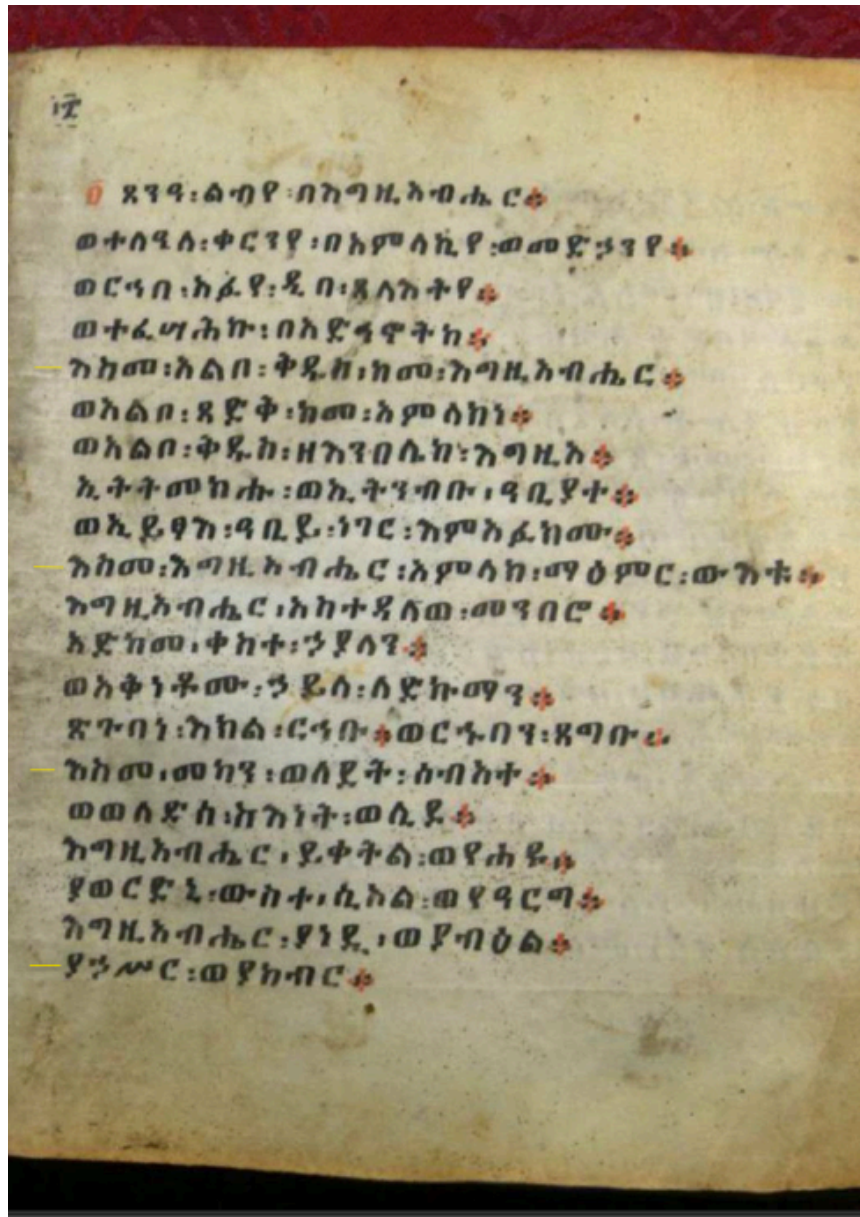 ፬ ጸንዓ፡ልብየ፡በእግዚአብሔር።
ወተለዓለ፡ቀርንየ፡በአምላኪየ፡ወመድኃንየ።
ወርኅበ፡አፈየ፡ዲበ፡ጸላእትየ።
ወተፈሣሕኩ፡በአድኅኖትከ።
እስመ፡አልቦ፡ቅዱስ፡ከመ፡እግዚአብሔር።
ወአልቦ፡ጻድቅ፡ከመ፡አምላክነ።
ወአልቦ፡ቅዱስ፡ዘእንበሌከ፡እግዚእ።
ኢትትመክሑ፡ወኢትንብቡ፡ዓቢያተ።
ወኢይፃእ፡ዓቢይ፡ነገር፡እምአፉክሙ።
እስመ፡እግዚአብሔር፡አምላክ፡ማዕምር፡ውእቱ።
እግዚአብሔር፡አስተዳለወ፡መንበሮ።
አድከመ፡ቀስተ፡ኃያላን።
ወአቅነቶሙ፡ኃይለ፡ለድኩማን።
ጽጉባነ፡እክል፡ርኅቡ።ወርኁባን፡ጸግቡ።
እስመ፡መካን፡ወለደት፡ስብአተ።
ወወላድስ፡ስእነት፡ወሊደ።
እግዚአብሔር፡ይቀትል፡ወየሐዩ።
ያወርድኒ፡ውስተ፡ሲኦል፡ወየዓርግ።
እግዚአብሔር፡ያነዲ፡ወያብዕል።
ያኃሥር፡ወያከብር።